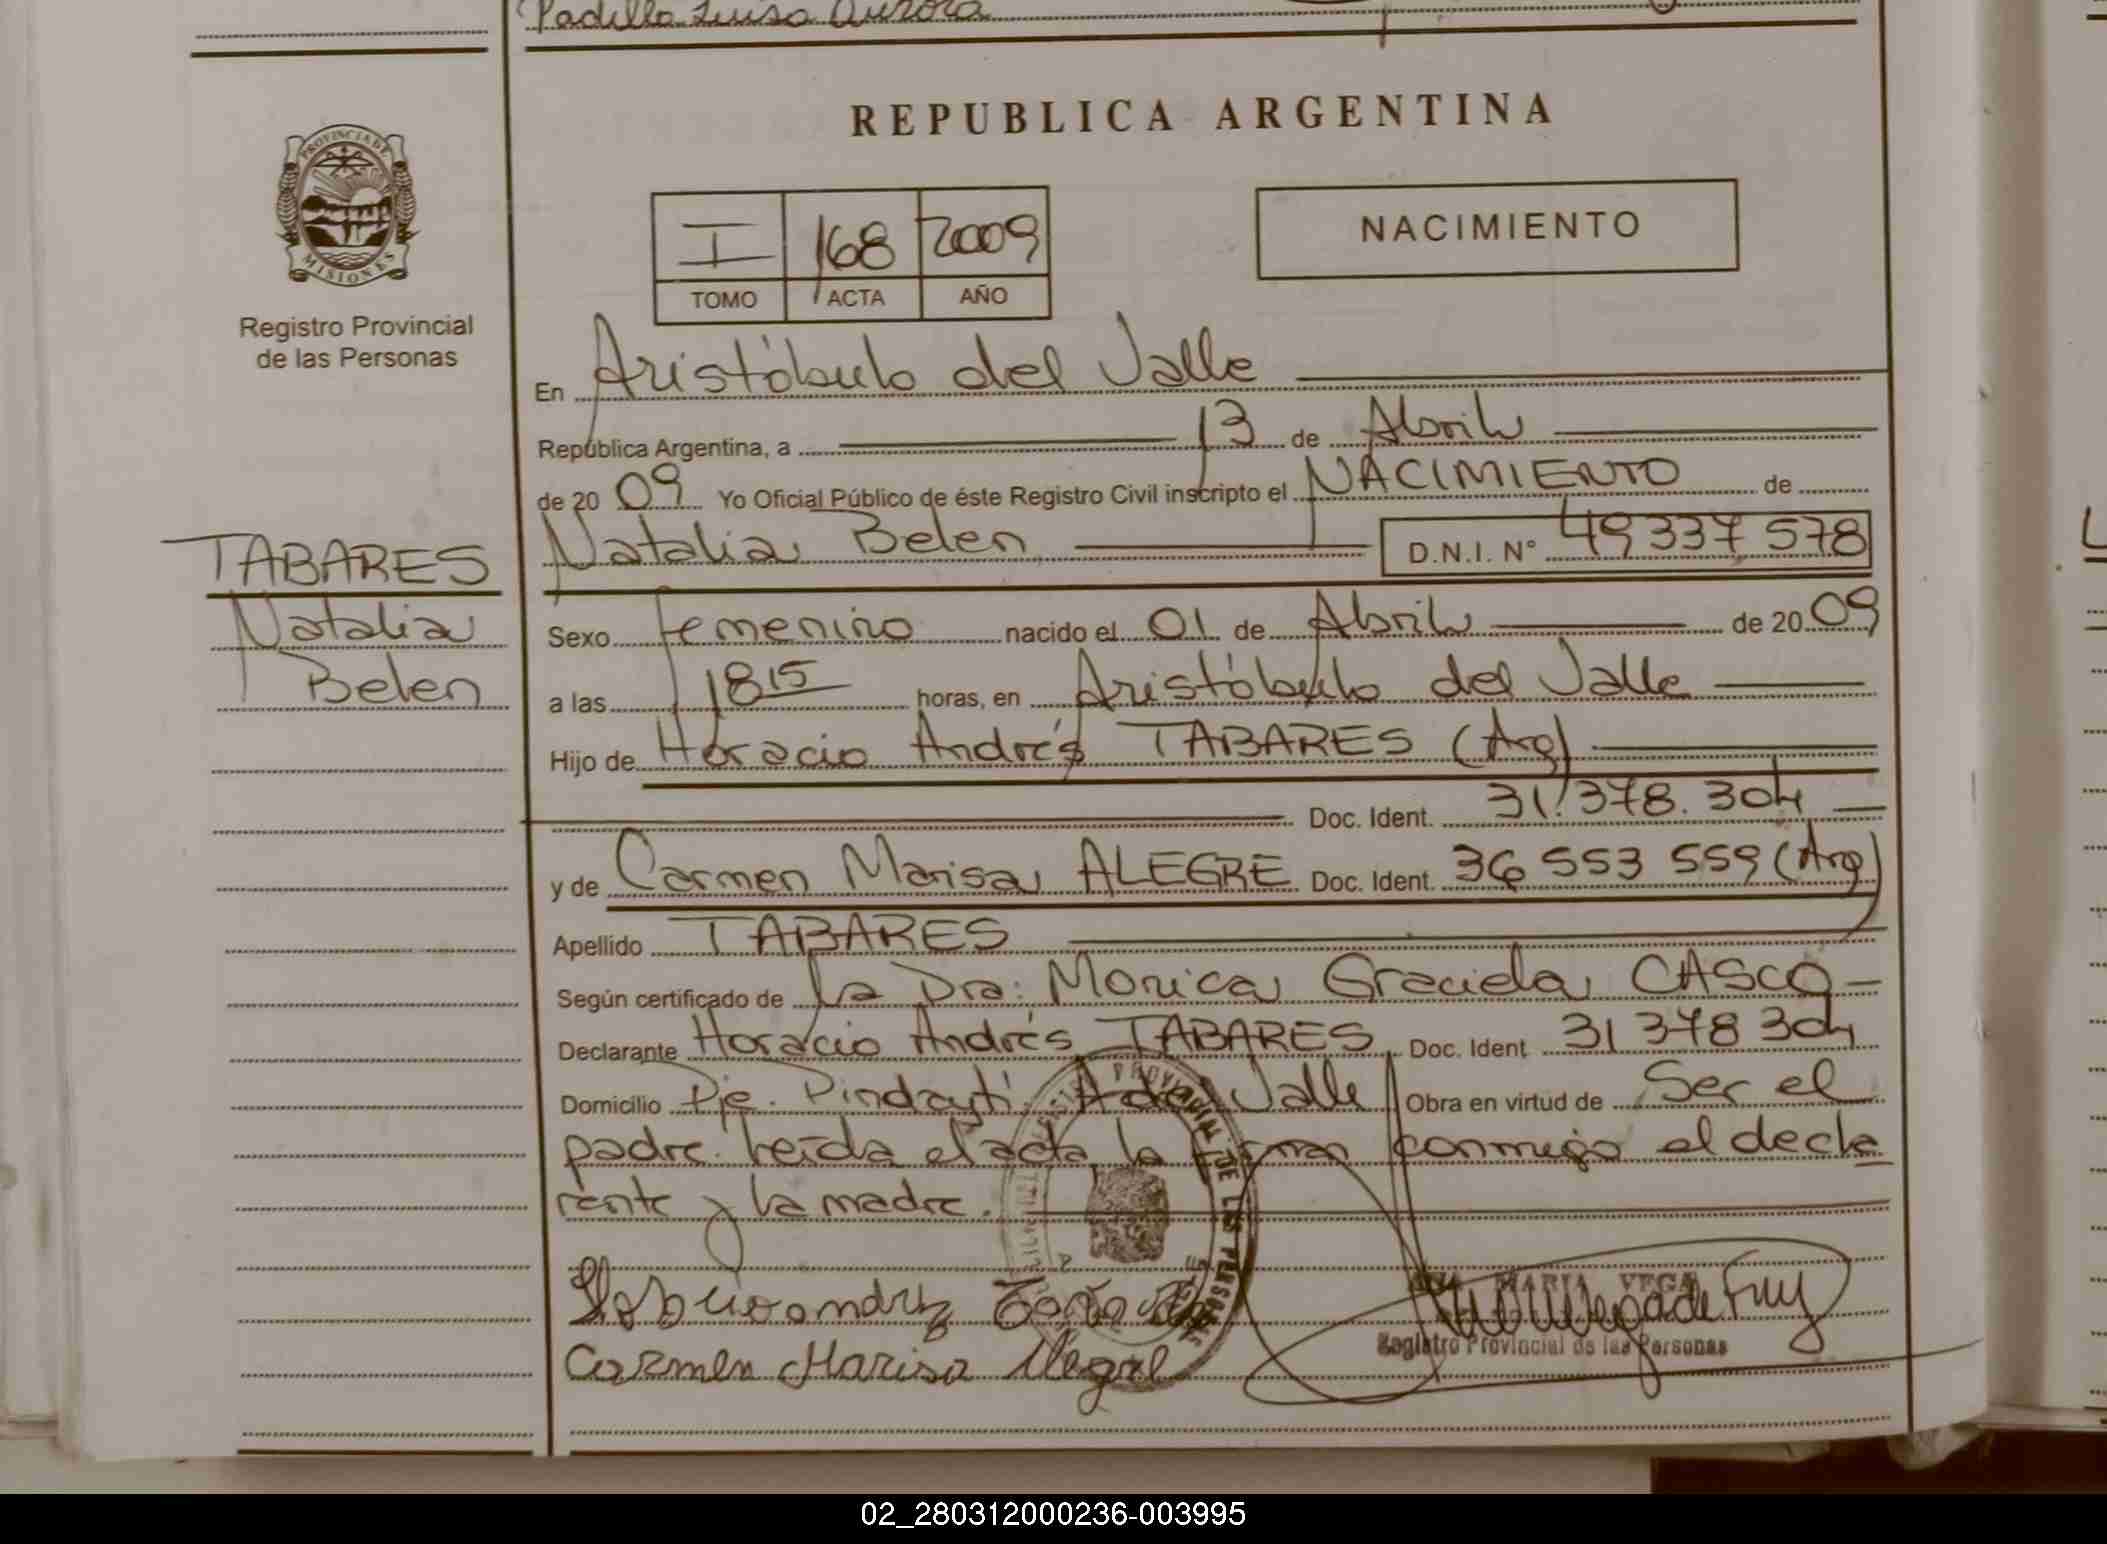 Padilla Luisa Aurora
REPUBLICA ARGENTINA
PROVINCIA DE
MISIONES
Registro Provincial
de las Personas
I 168 2009
TOMO ACTA AÑO
NACIMIENTO
En Aristóbulo del Valle
República Argentina, a 13 de Abril
de 2009 Yo Oficial Público de éste Registro Civil inscripto el NACIMIENTO de
TABARES
Natalia
Belen
Natalia Belen D.N.I. N° 49337578
Sexo femenino nacido el 01 de Abril de 2009
a las 18 15 horas, en Aristóbulo del Valle
Hijo de Horacio Andrés TABARES (Arg)
Doc. Ident. 31.378.304
y de Carmen Marisa ALEGRE Doc. Ident. 36 553 559 (Arg)
Apellido TABARES
Según certificado de La Dra. Monica Graciela CASCO
Declarante Horacio Andrés TABARES Doc. Ident 31 378 304
Domicilio Pje. Pindaytí. A del Valle Obra en virtud de Ser el
padre. Leída el acta la firman conmigo el decla
rante y la madre.
Carmen Marisa Alegre
MARIA VEGA
Registro Provincial de las Personas
02_280312000236-003995